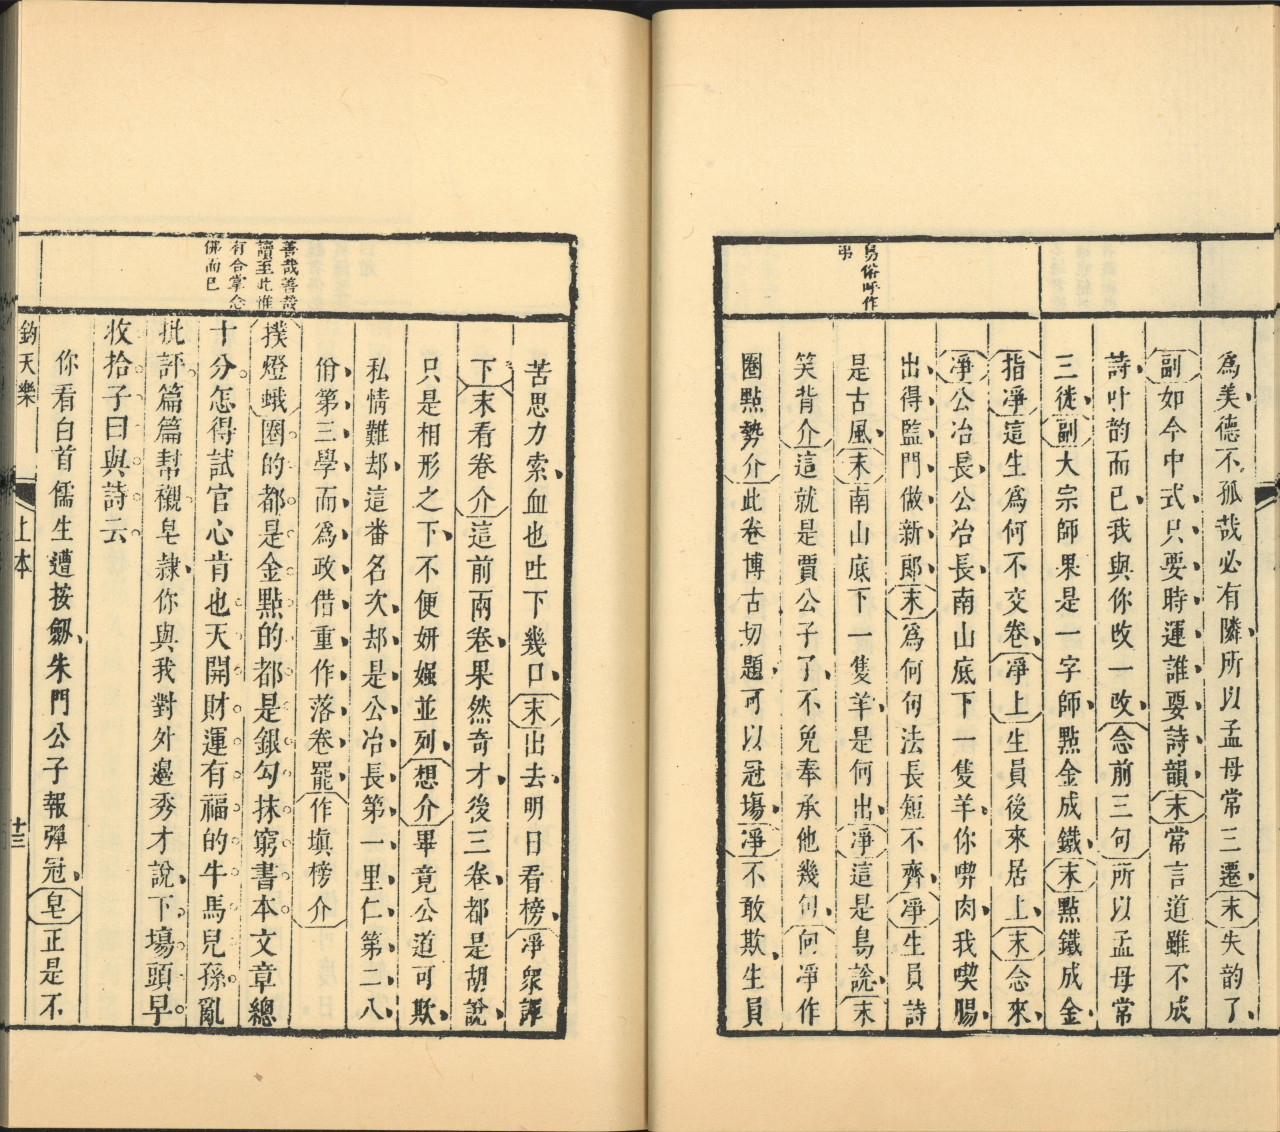 為美德不孤哉必有隣所以孟母常三遷末失韵了
副如今中式只要時運誰要詩韻末常言道雖不成
詩叶韵而已我與你改一改念前三句所以孟母常
三徙副大宗師果是一字師點金成鐵末點鐵成金
指淨這生為何不交卷淨上生員後來居上末念來
淨公冶長公冶長南山底下一隻羊你喫肉我喫腸
出得監門做新郎末為何句法長短不齊淨生員詩
是古風末南山底下一隻羊是何出淨這是鳥說末
笑背介這就是賈公子了不免奉承他幾句向淨作
圈點勢介此卷博古切題可以冠場淨不敢欺生員
鳥俗呼作
弔
苦思力索血也吐下幾口末出去明日看榜淨衆譁
下末看卷介這前兩卷果然奇才後三卷都是胡說
只是相形之下不便妍媸並列想介畢竟公道可欺
私情難却這番名次却是公冶長第一里仁第二八
佾第三學而為政借重作落卷罷作塡榜介
撲燈蛾圈的都是金點的都是銀勾抹窮書本文章總
十分怎得試官心肯也天開財運有福的牛馬兒孫亂
批評篇篇幫襯皂隸你與我對外邉秀才說下塲頭早
收拾子曰與詩云
你看白首儒生遭按劔朱門公子報彈冠皂正是不
善哉善哉
讀至此惟
有合掌念
佛而已
鈞天樂
上本
十三